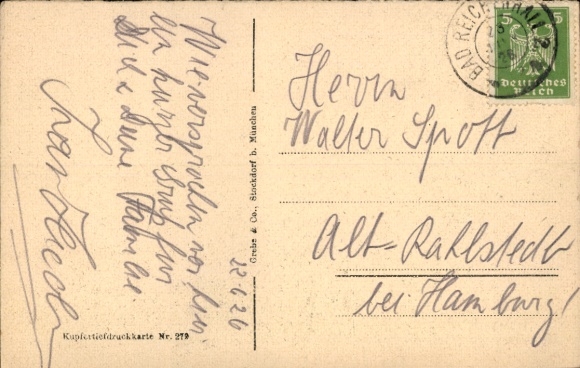 Wie versprochen von hier
ein kurzer Gruß für
Dich & Deine Familie.
22.6.26
Kupfertiefdruckkarte Nr. 279
Grebe & Co., Stockdorf b. München
BAD REICHENHALL 2
5 5
Deutsches
Reich
Herrn
Walter Spott
Alt-Rahlstedt
bei Hamburg!